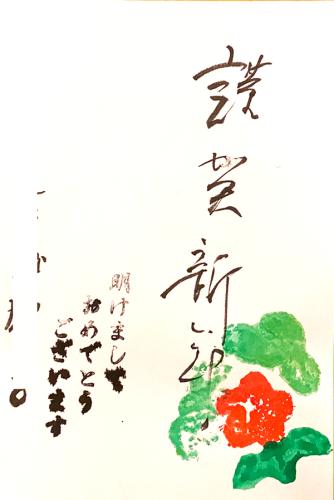 謹賀新年
明けまして
おめでとう
ございます